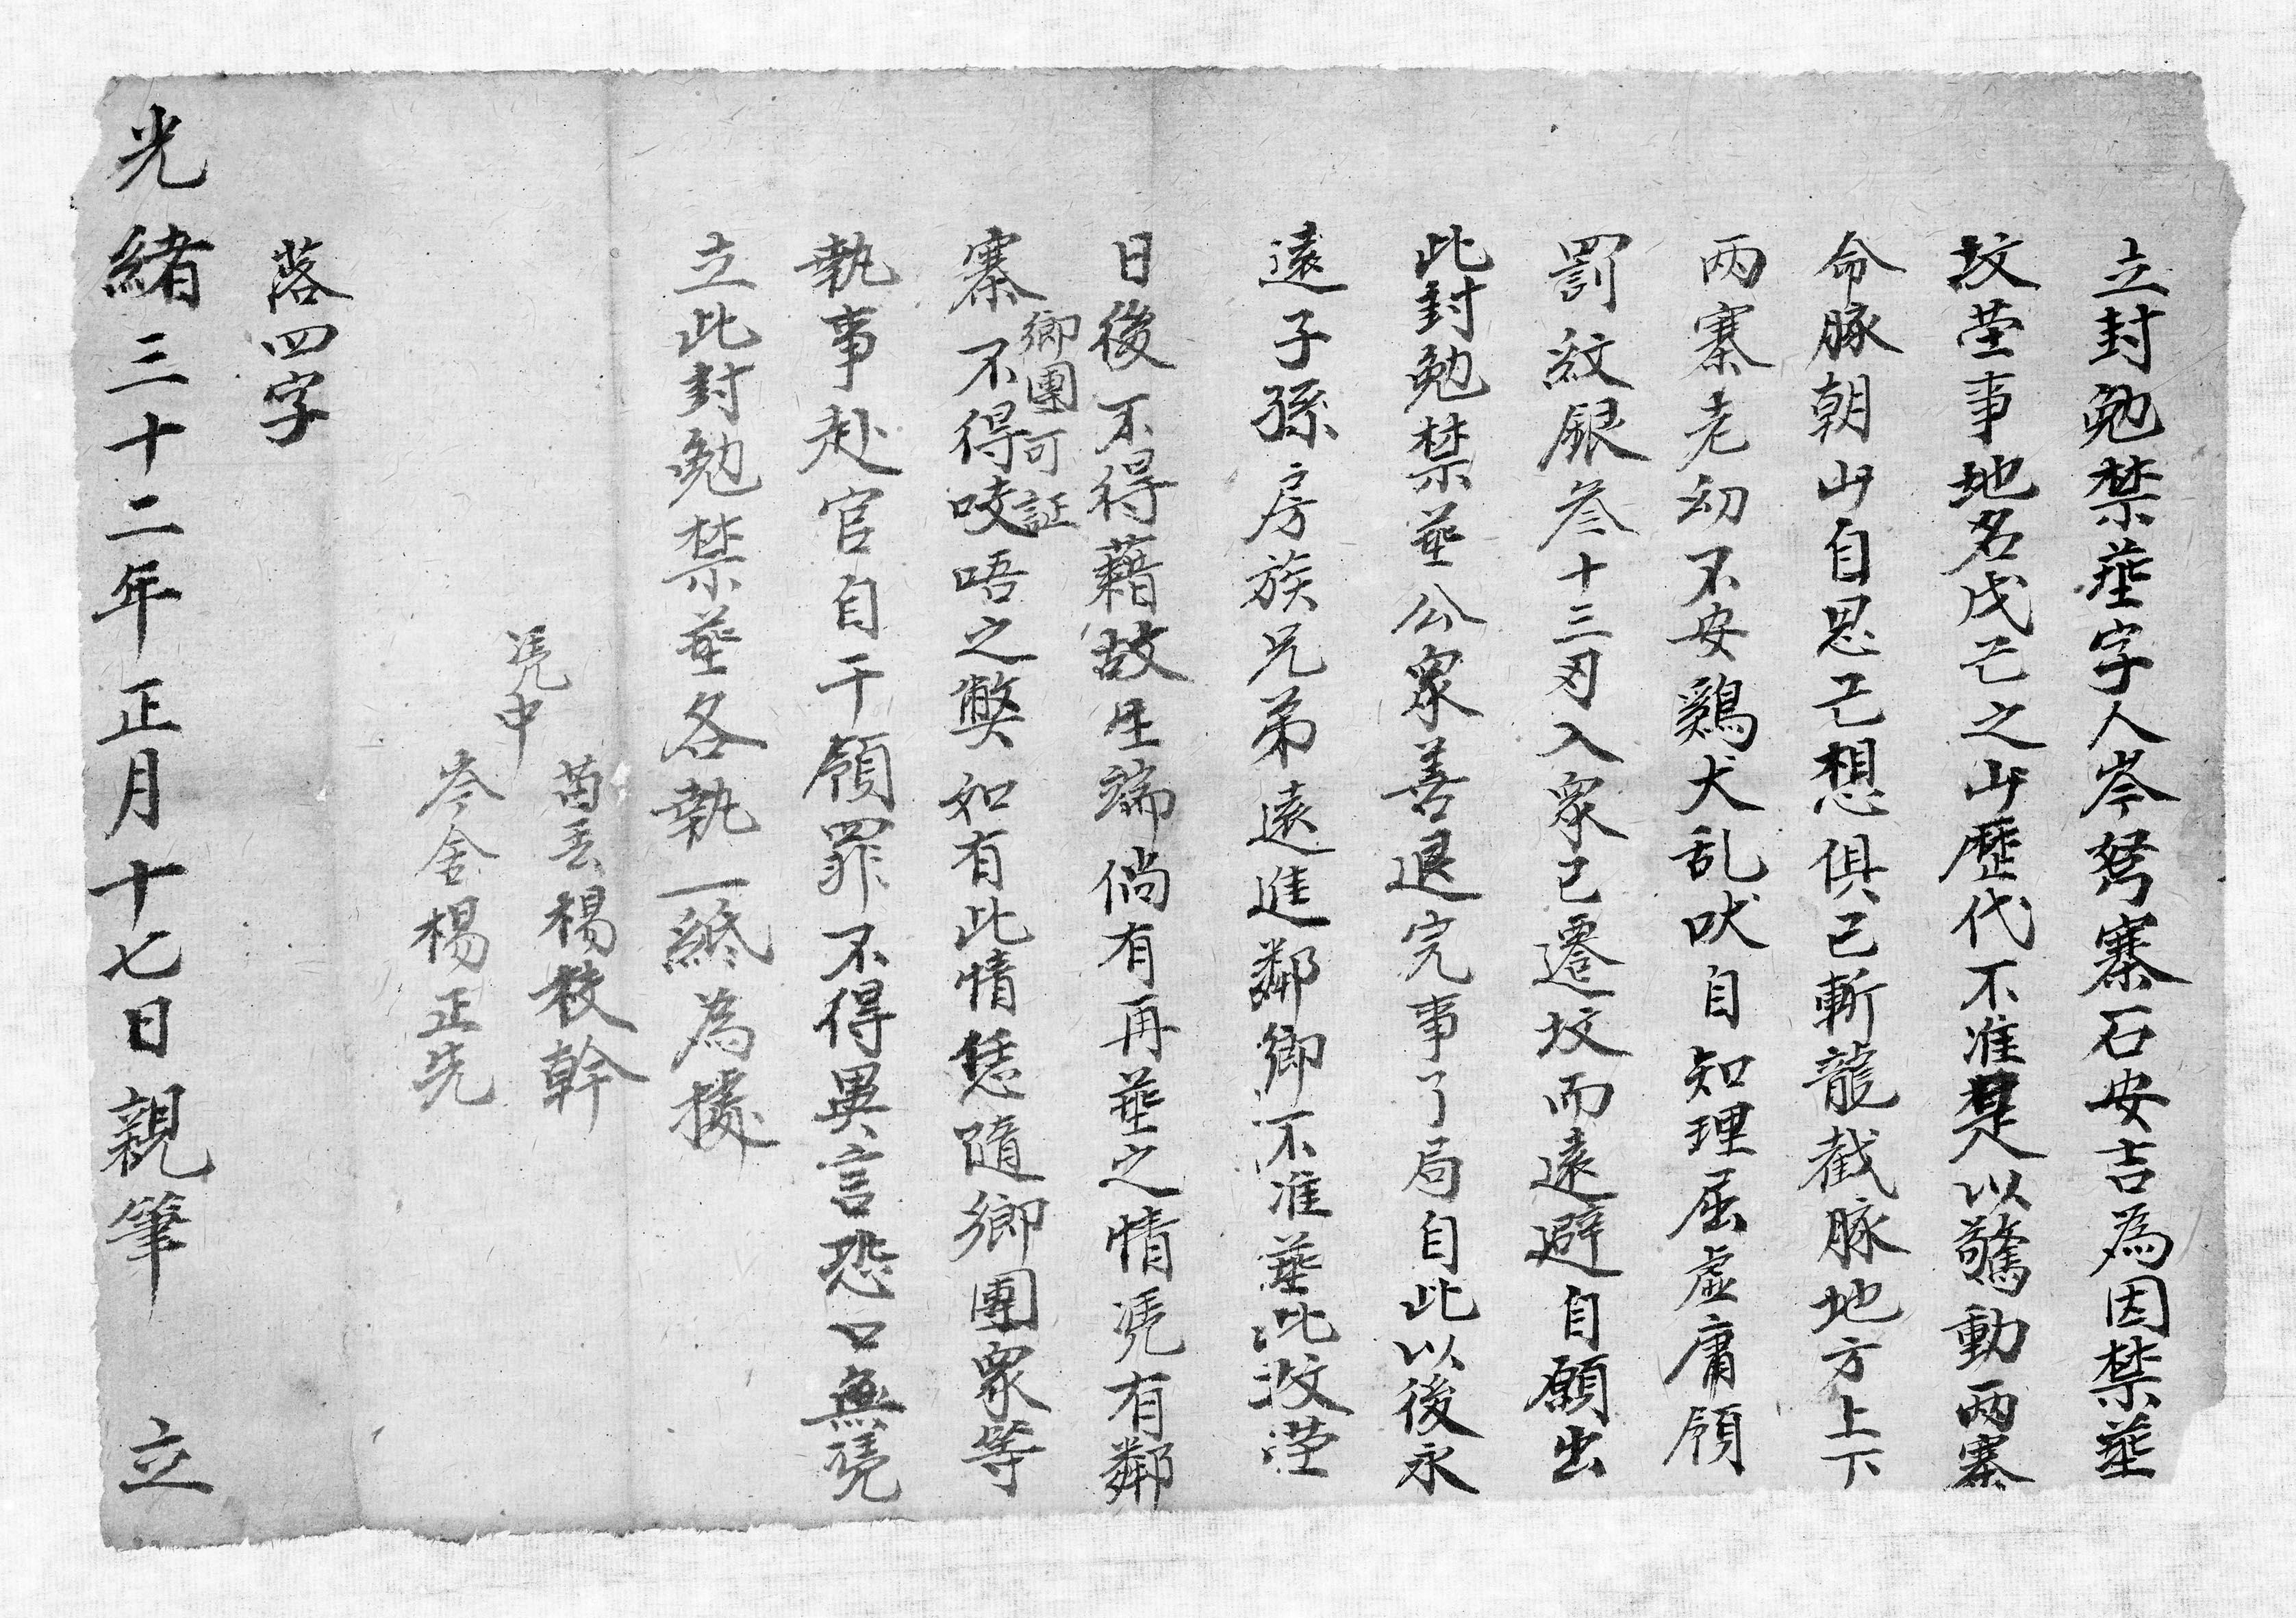 立封勉禁塟字人岑努寨石安吉為因禁塟
坟塋事地名戊己之山歷代不准以驚動兩寨
命脉朝山自思己想俱已斬龍截脉地方上下
兩寨老幼不安鷄犬乱吠自知理屈虛庸領
罰紋銀叁十三刃入眾已遷坟而遠避自願出
此封勉禁塟公眾善退完事了局自此以後永
遠子孫房族兄弟遠進鄰鄉不准塟此坟塋
日後不得藉故生端倘有再塟之情凭有鄰
鄉團可証
寨不得咬唔之弊如有此情恁隨鄉團眾等
執事赴官自干領罪不得異言恐口無凭
立此封勉禁塟各執一紙為據
凭中
苗丢楊校幹
岑舍楊正先
落四字
光緒三十二年正月十七日親筆 立